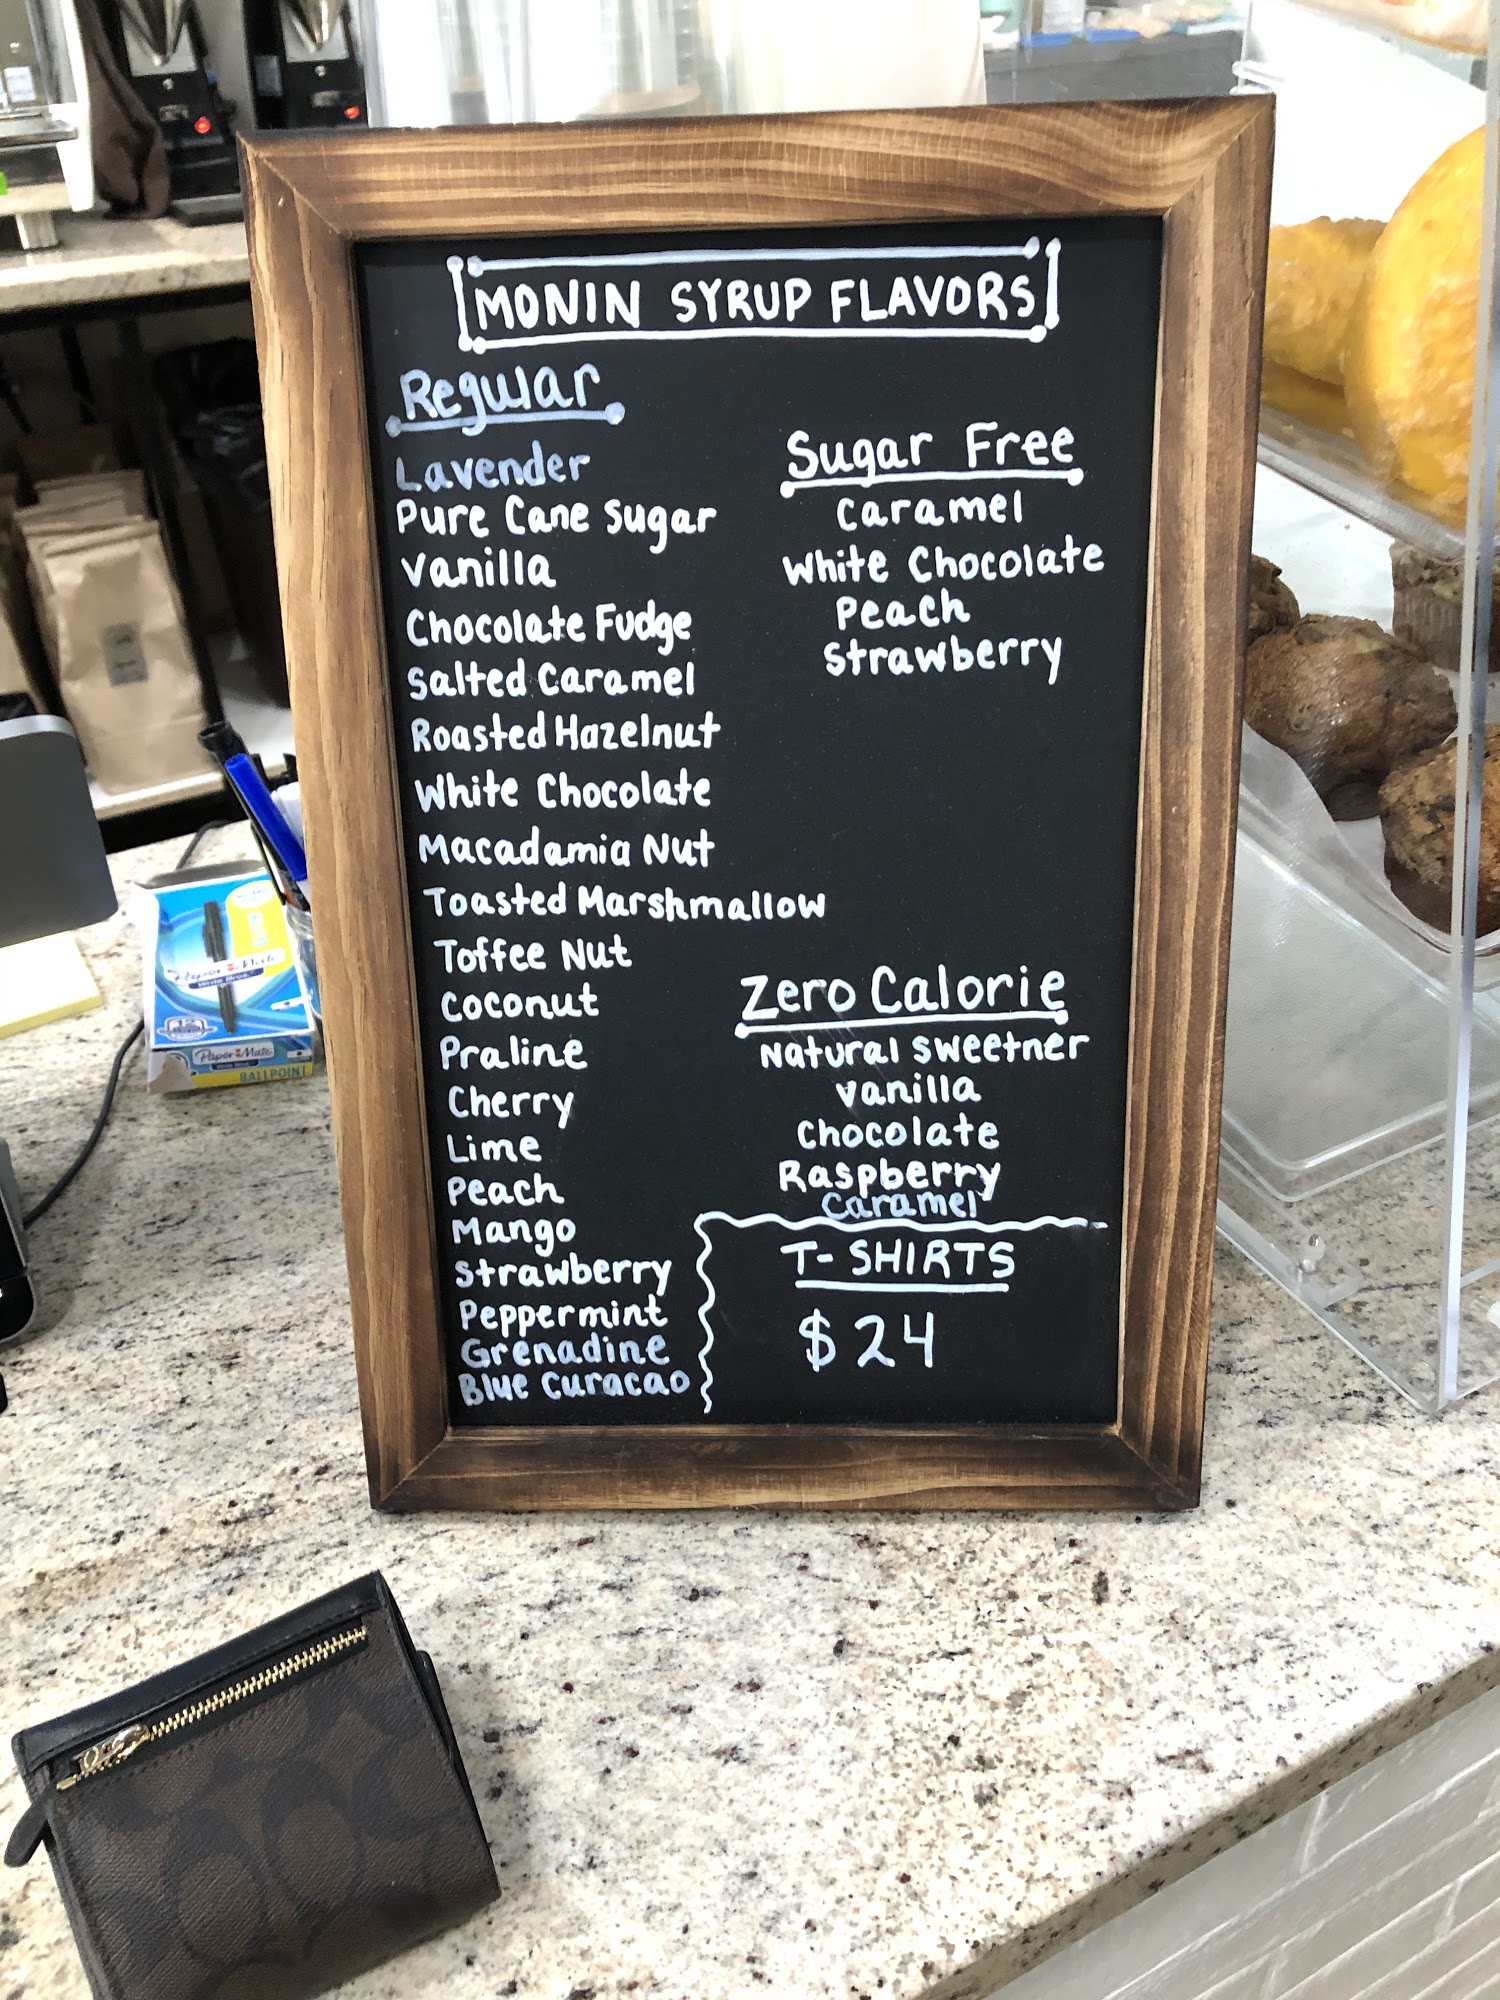 MONIN SYRUP FLAVORS
Regular
Lavender
Pure Cane Sugar
Vanilla
Chocolate Fudge
Salted Caramel
Roasted Hazelnut
White Chocolate
Macadamia Nut
Toasted Marshmallow
Toffee Nut
Coconut
Praline
Cherry
Lime
Peach
Mango
Strawberry
Peppermint
Grenadine
Blue Curacao
Sugar Free
Caramel
White Chocolate
Peach
Strawberry
Zero Calorie
Natural Sweetner
Vanilla
Chocolate
Raspberry
Caramel
T-SHIRTS
$24
Paper Mate
Write Bros.
12
Paper Mate
BALLPOINT